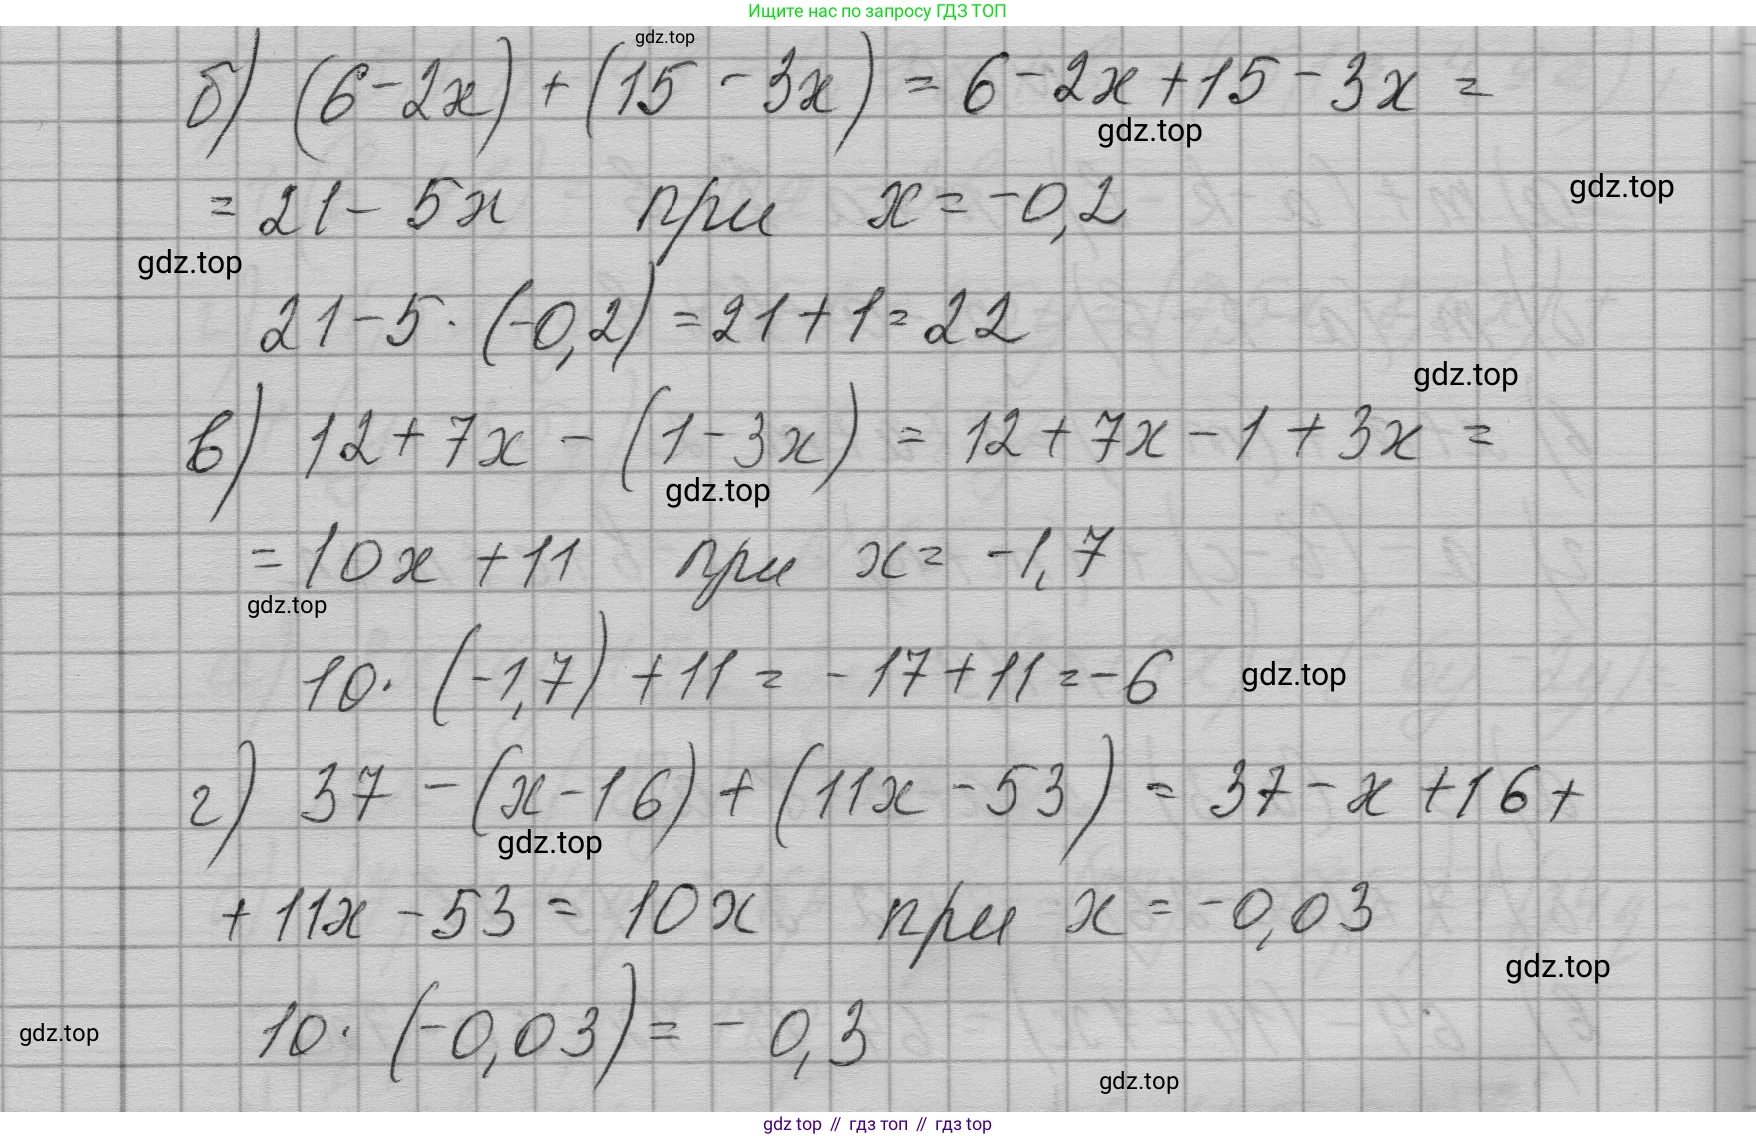 Ищите нас по запросу ГДЗ ТОП
gdz.top
б) (6-2x)+(15-3x)=6-2x+15-3x=
gdz.top
=21-5x при x=-0,2
gdz.top
gdz.top
21-5·(-0,2)=21+1=22
gdz.top
в) 12+7x-(1-3x)=12+7x-1+3x=
gdz.top
=10x+11 при x=-1,7
gdz.top
10·(-1,7)+11=-17+11=-6
gdz.top
г) 37-(x-16)+(11x-53)=37-x+16+
gdz.top
+11x-53=10x при x=-0,03
gdz.top
10·(-0,03)=-0,3
gdz.top
gdz.top
gdz top // гдз топ // гдз top